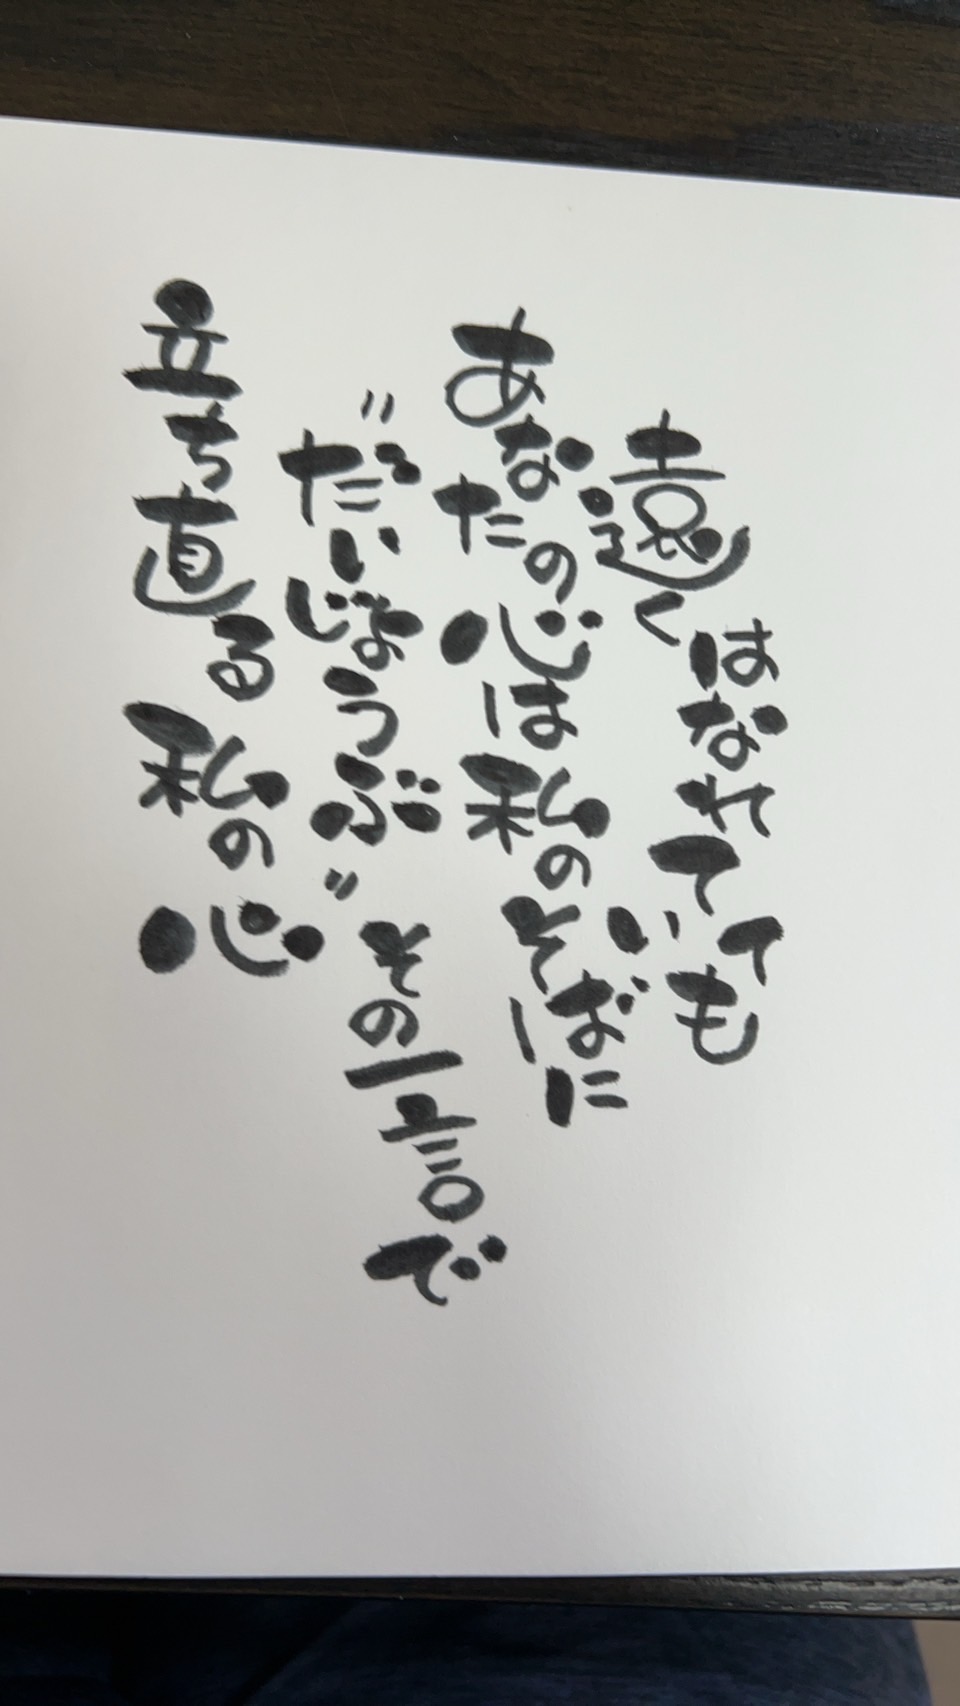 遠くはなれていても
あなたの心は私のそばに
"だいじょうぶ"その一言で
立ち直る私の心